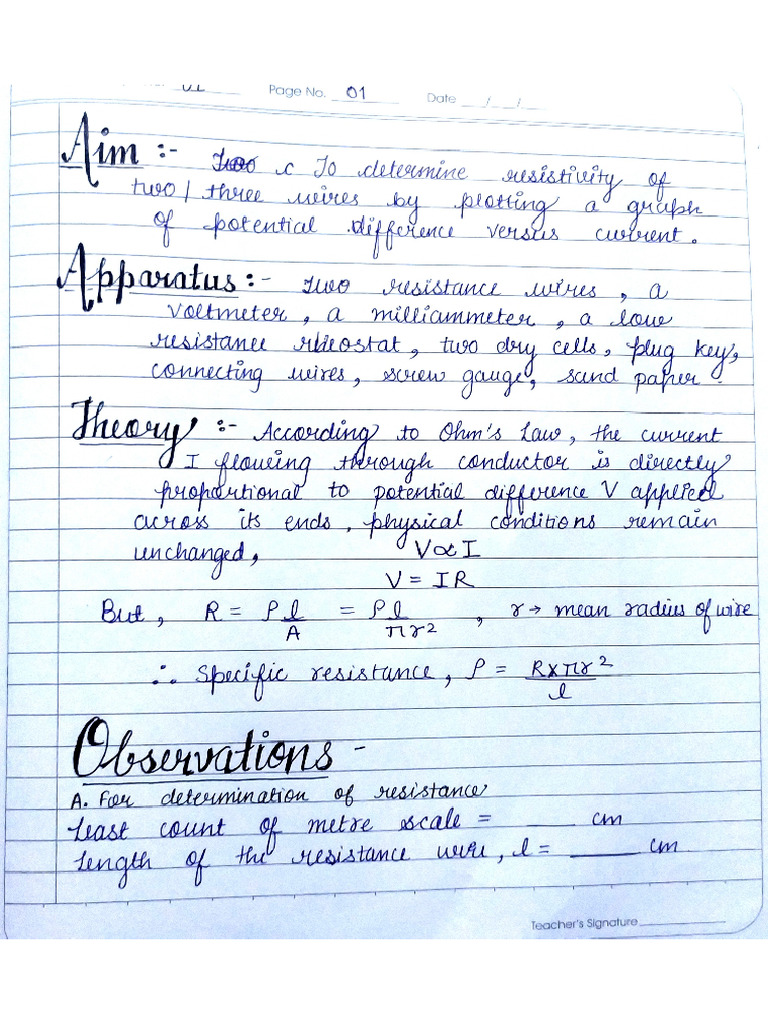 01 Page No. 01 Date __/__/__
Aim :- To determine resistivity of
two/three wires by plotting a graph
of potential difference versus current.
Apparatus :- Two resistance wires, a
voltmeter, a milliammeter, a low
resistance rheostat, two dry cells, plug key,
connecting wires, screw gauge, sand paper.
Theory :- According to Ohm's Law, the current
I flowing through conductor is directly
proportional to potential difference V applied
across its ends, physical conditions remain
unchanged, V∝I
V = IR
But, R = ρl/A = ρl/πr², r → mean radius of wire
∴ Specific resistance, ρ = R×πr²/l
Observations -
A. For determination of resistance
Least count of metre scale = ____ cm
Length of the resistance wire, l = ____ cm
Teacher's Signature